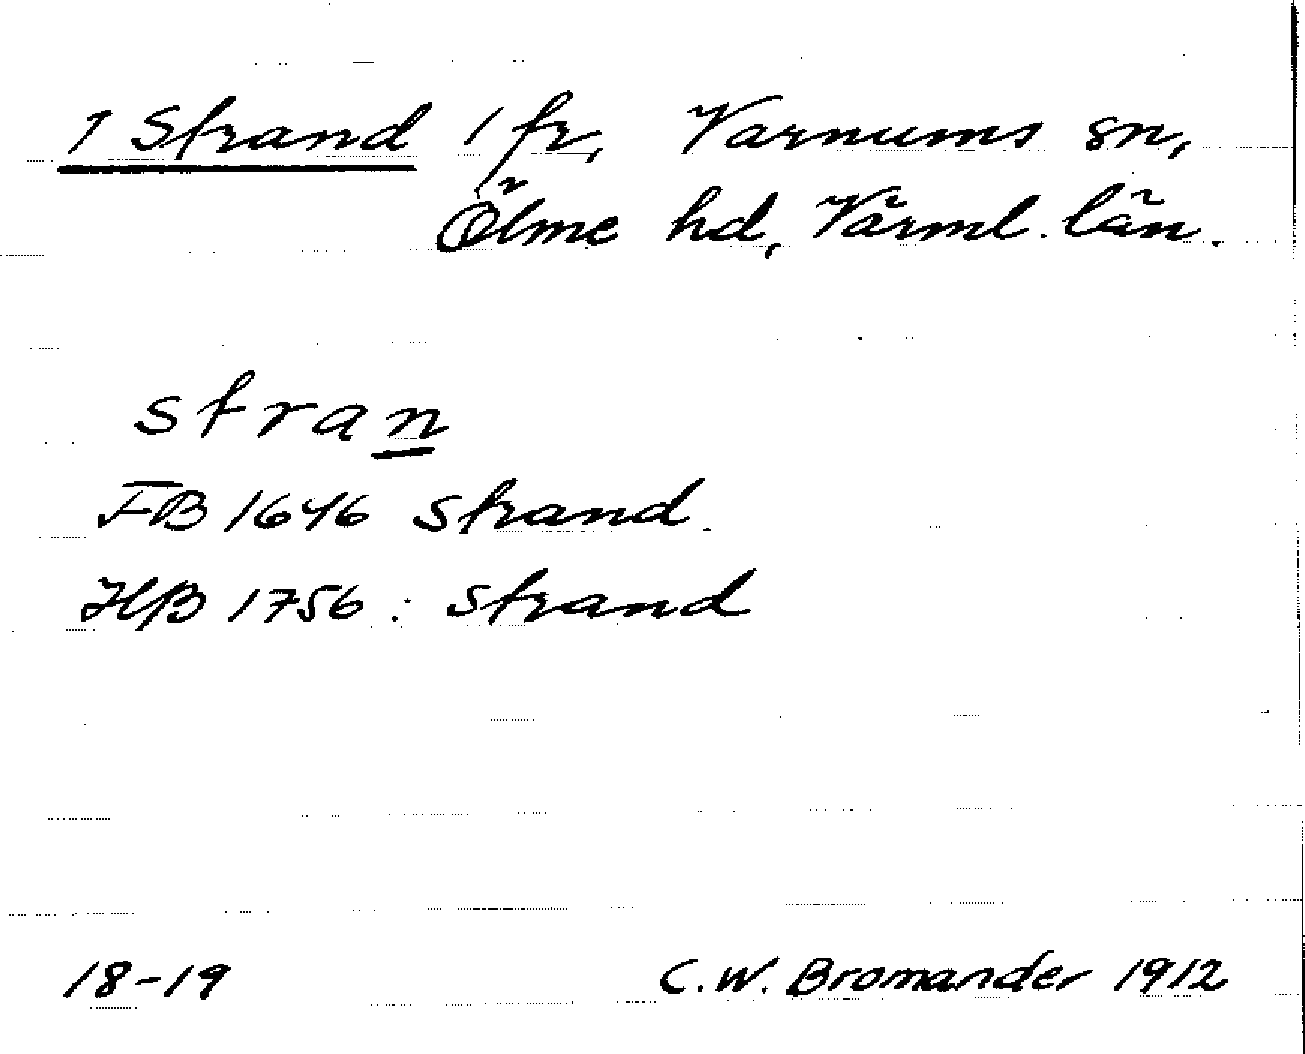 1 Strand 1 fr, Varnums sn,
Ölme hd, Värml. län.
stran
JB 1646 Strand.
HB 1756: Strand
18-19 C.W. Bromander 1912